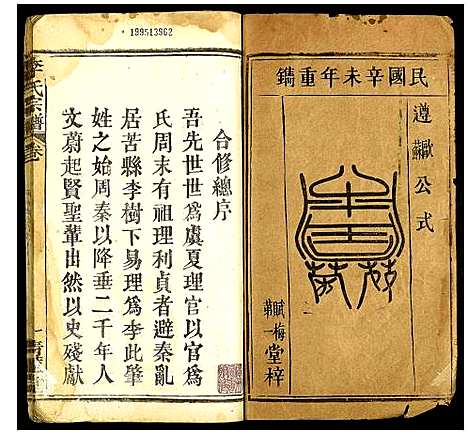 民國辛未年重鐫
遵歐蘇公式
賦梅第一堂梓
199513962
合修總序
吾先世世為虞夏理官以官為
氏周末有祖理利貞者避秦亂
居苦縣李樹下易理為李此肇
姓之始周秦以降垂二千年人
文蔚起賢聖輩出然以史殘獻
李氏宗譜
卷
一